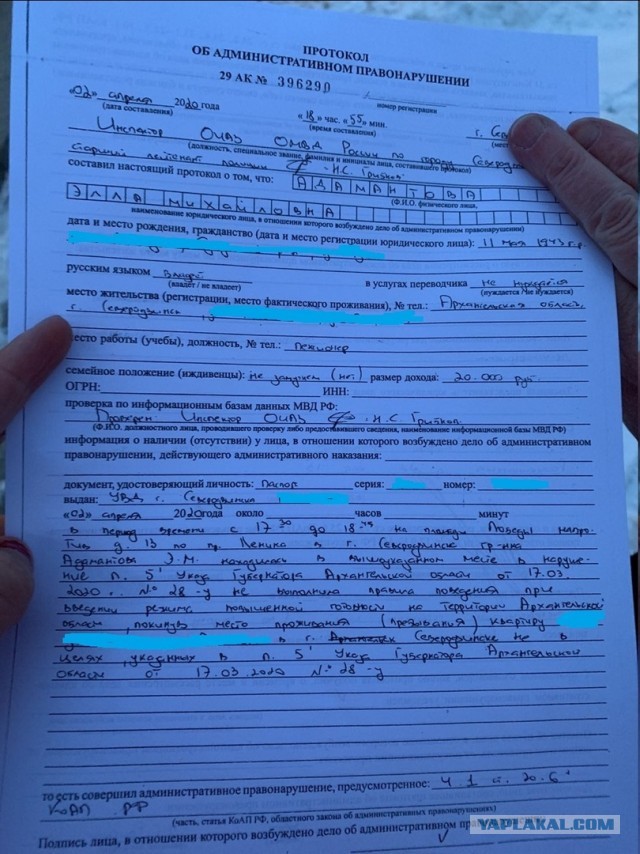 ПРОТОКОЛ
ОБ АДМИНИСТРАТИВНОМ ПРАВОНАРУШЕНИИ
29 АК № 396290
номер регистрации
«02» апреля 2020 года
(дата составления)
«18» час. «55» мин.
(время составления)
г.
Инспектор ОИАЗ ОМВД России по городу
(должность, специальное звание, фамилия и инициалы лица, составившего протокол)
старший лейтенант полиции Н.С.
составил настоящий протокол о том, что: АДАМАНТОВА
(Ф.И.О. физического лица,
ЭЛЛА МИХАЙЛОВНА
наименование юридического лица, в отношении которого возбуждено дело об административном правонарушении)
дата и место рождения, гражданство (дата и место регистрации юридического лица): 11 мая 1943 г.р.
русским языком
(владеет / не владеет)
в услугах переводчика не
(нуждается /не нуждается)
место жительства (регистрации, место фактического проживания), № тел.: Архангельская область,
г. Северодвинск,
место работы (учебы), должность, № тел.: пенсионер
семейное положение (иждивенцы): не замужем (нет) размер дохода: 20.000 руб.
ОГРН: ИНН:
проверка по информационным базам данных МВД РФ:
Инспектор ОИАЗ Н.С.
(Ф.И.О. должностного лица, проводившего проверку либо предоставившего сведения, наименование информационной базы МВД РФ)
информация о наличии (отсутствии) у лица, в отношении которого возбуждено дело об административном
правонарушении, действующего административного наказания:
документ, удостоверяющий личность: Паспорт серия: номер:
выдан: УВД г. Северодвинска
«02» апреля 2020 года около часов минут
в период времени с 17 30 до 18 на площади Победы напро-
тив д. 13 по пр. Ленина в г. Северодвинск гр-нка
Адамантова Э.М. находилась в вышеуказанном месте в наруше-
ние п. 5¹ Указа Губернатора Архангельской области от 17.03.
2020 г. № 28-у не выполнила правила поведения при
введении режима повышенной готовности на территории Архангельской
области, покинув место проживания (пребывания) квартиру
в г. Северодвинске не в
целях, указанных в п. 5¹ Указа Губернатора Архангельской
области от 17.03.2020 № 28-у
то есть совершил административное правонарушение, предусмотренное: ч. 1 ст. 20.6¹
КоАП РФ
(часть, статья КоАП РФ, областного закона об административных правонарушениях)
Подпись лица, в отношении которого возбуждено дело об административном
YAPLAKAL.COM